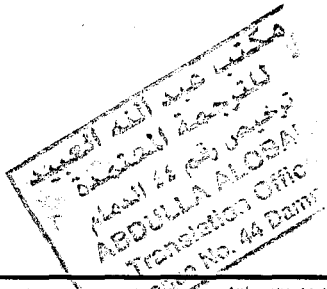 مكتب عبد الله العبيد
للترجمة المعتمدة
ترخيص رقم 44 الدمام
ABDULLA ALOBAI
Translation Offic
No. 44 Damm